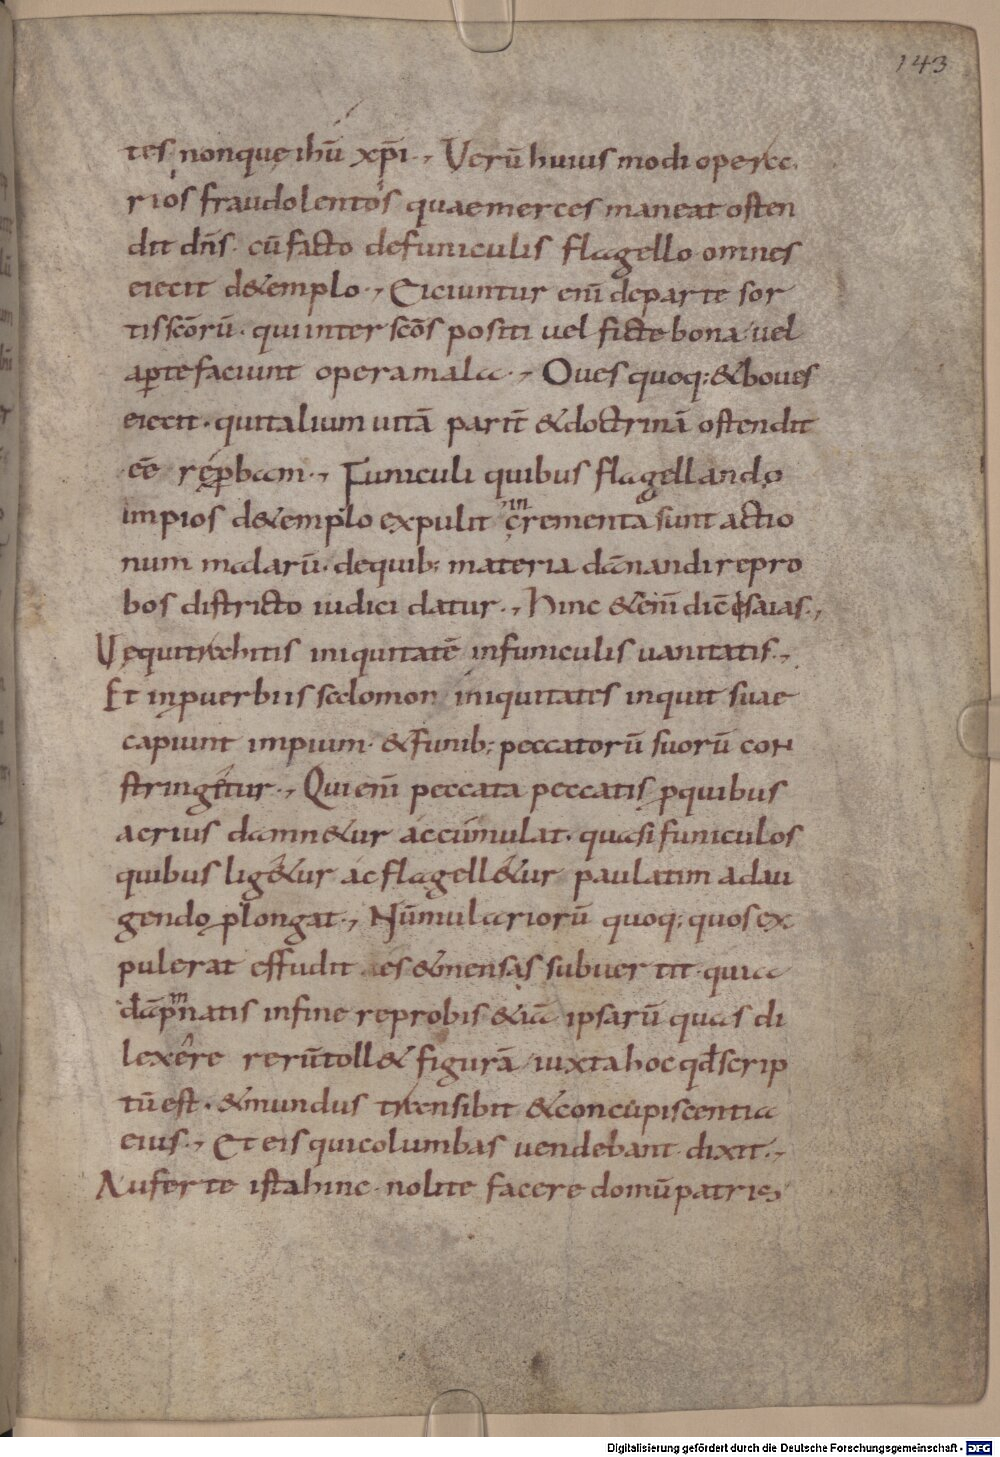 143
tes nonquę ihū xp̄i., Verū huius modi opera
rios fraudolentos quae merces maneat osten
dit dn̄s. cū facto de funiculis flagello omnes
eiecit de templo., Eiciuntur enī de parte sor
tis scōrū. qui inter scōs positi vel ficte bona vel
aperte faciunt opera mala., Oues quoq; & boues
eiecit. qui talium uitā parit̄ & doctrinā ostendit
eē reprobam., Funiculi quibus flagellando
impios d& emplo expulit crementa sunt actio
num malarū. de quib; materia dānandi repro
bos districto iudici datur., Hinc & enī dic̄ esaias.,
Vę qui trahitis iniquitatē in funiculis uanitatis.,
Et in puerbiis salomon iniquitates inquit suae
capiunt impium. & funib; peccatorū suorū con
stringitur., Qui enī peccata peccatis p quibus
acrius damn&ur accumulat. quasi funiculos
quibus lig&ur ac flagell&ur paulatim adau
gendo plongat., Nūmulariorū quoq; quos ex
pulerat effudit aes & mensas subuertit. quia
dāpnatis in fine reprobis &iā ipsarū quas di
lexere rerū toll& figurā iuxta hoc qđ scrip
tū est. & mundus transibit & concupiscentia
eius., Et eis qui columbas uendebant dixit.,
Auferte ista hinc. nolite facere domū patris
Digitalisierung gefördert durch die Deutsche Forschungsgemeinschaft - DFG